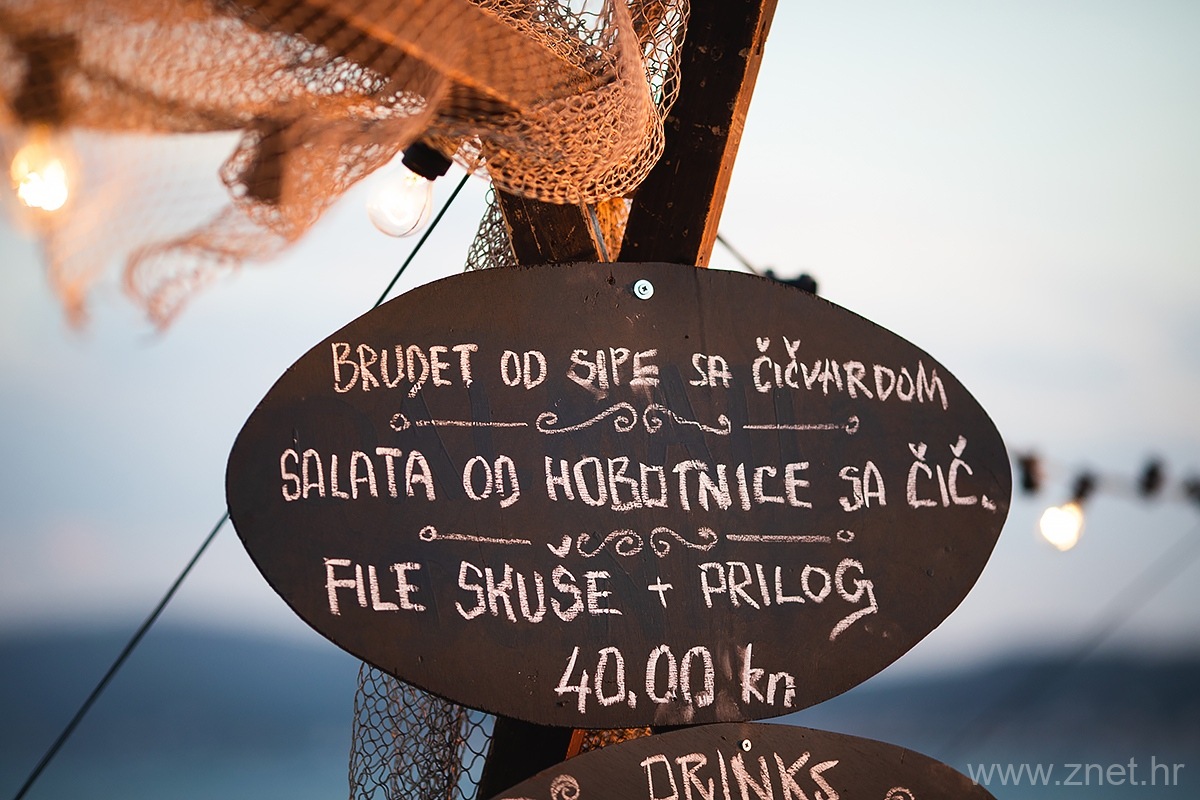 BRUDET OD SIPE SA ČIČVARDOM
SALATA OD HOBOTNICE SA ČIČ.
FILE SKUŠE + PRILOG
40.00 kn
DRINKS
www.znet.hr